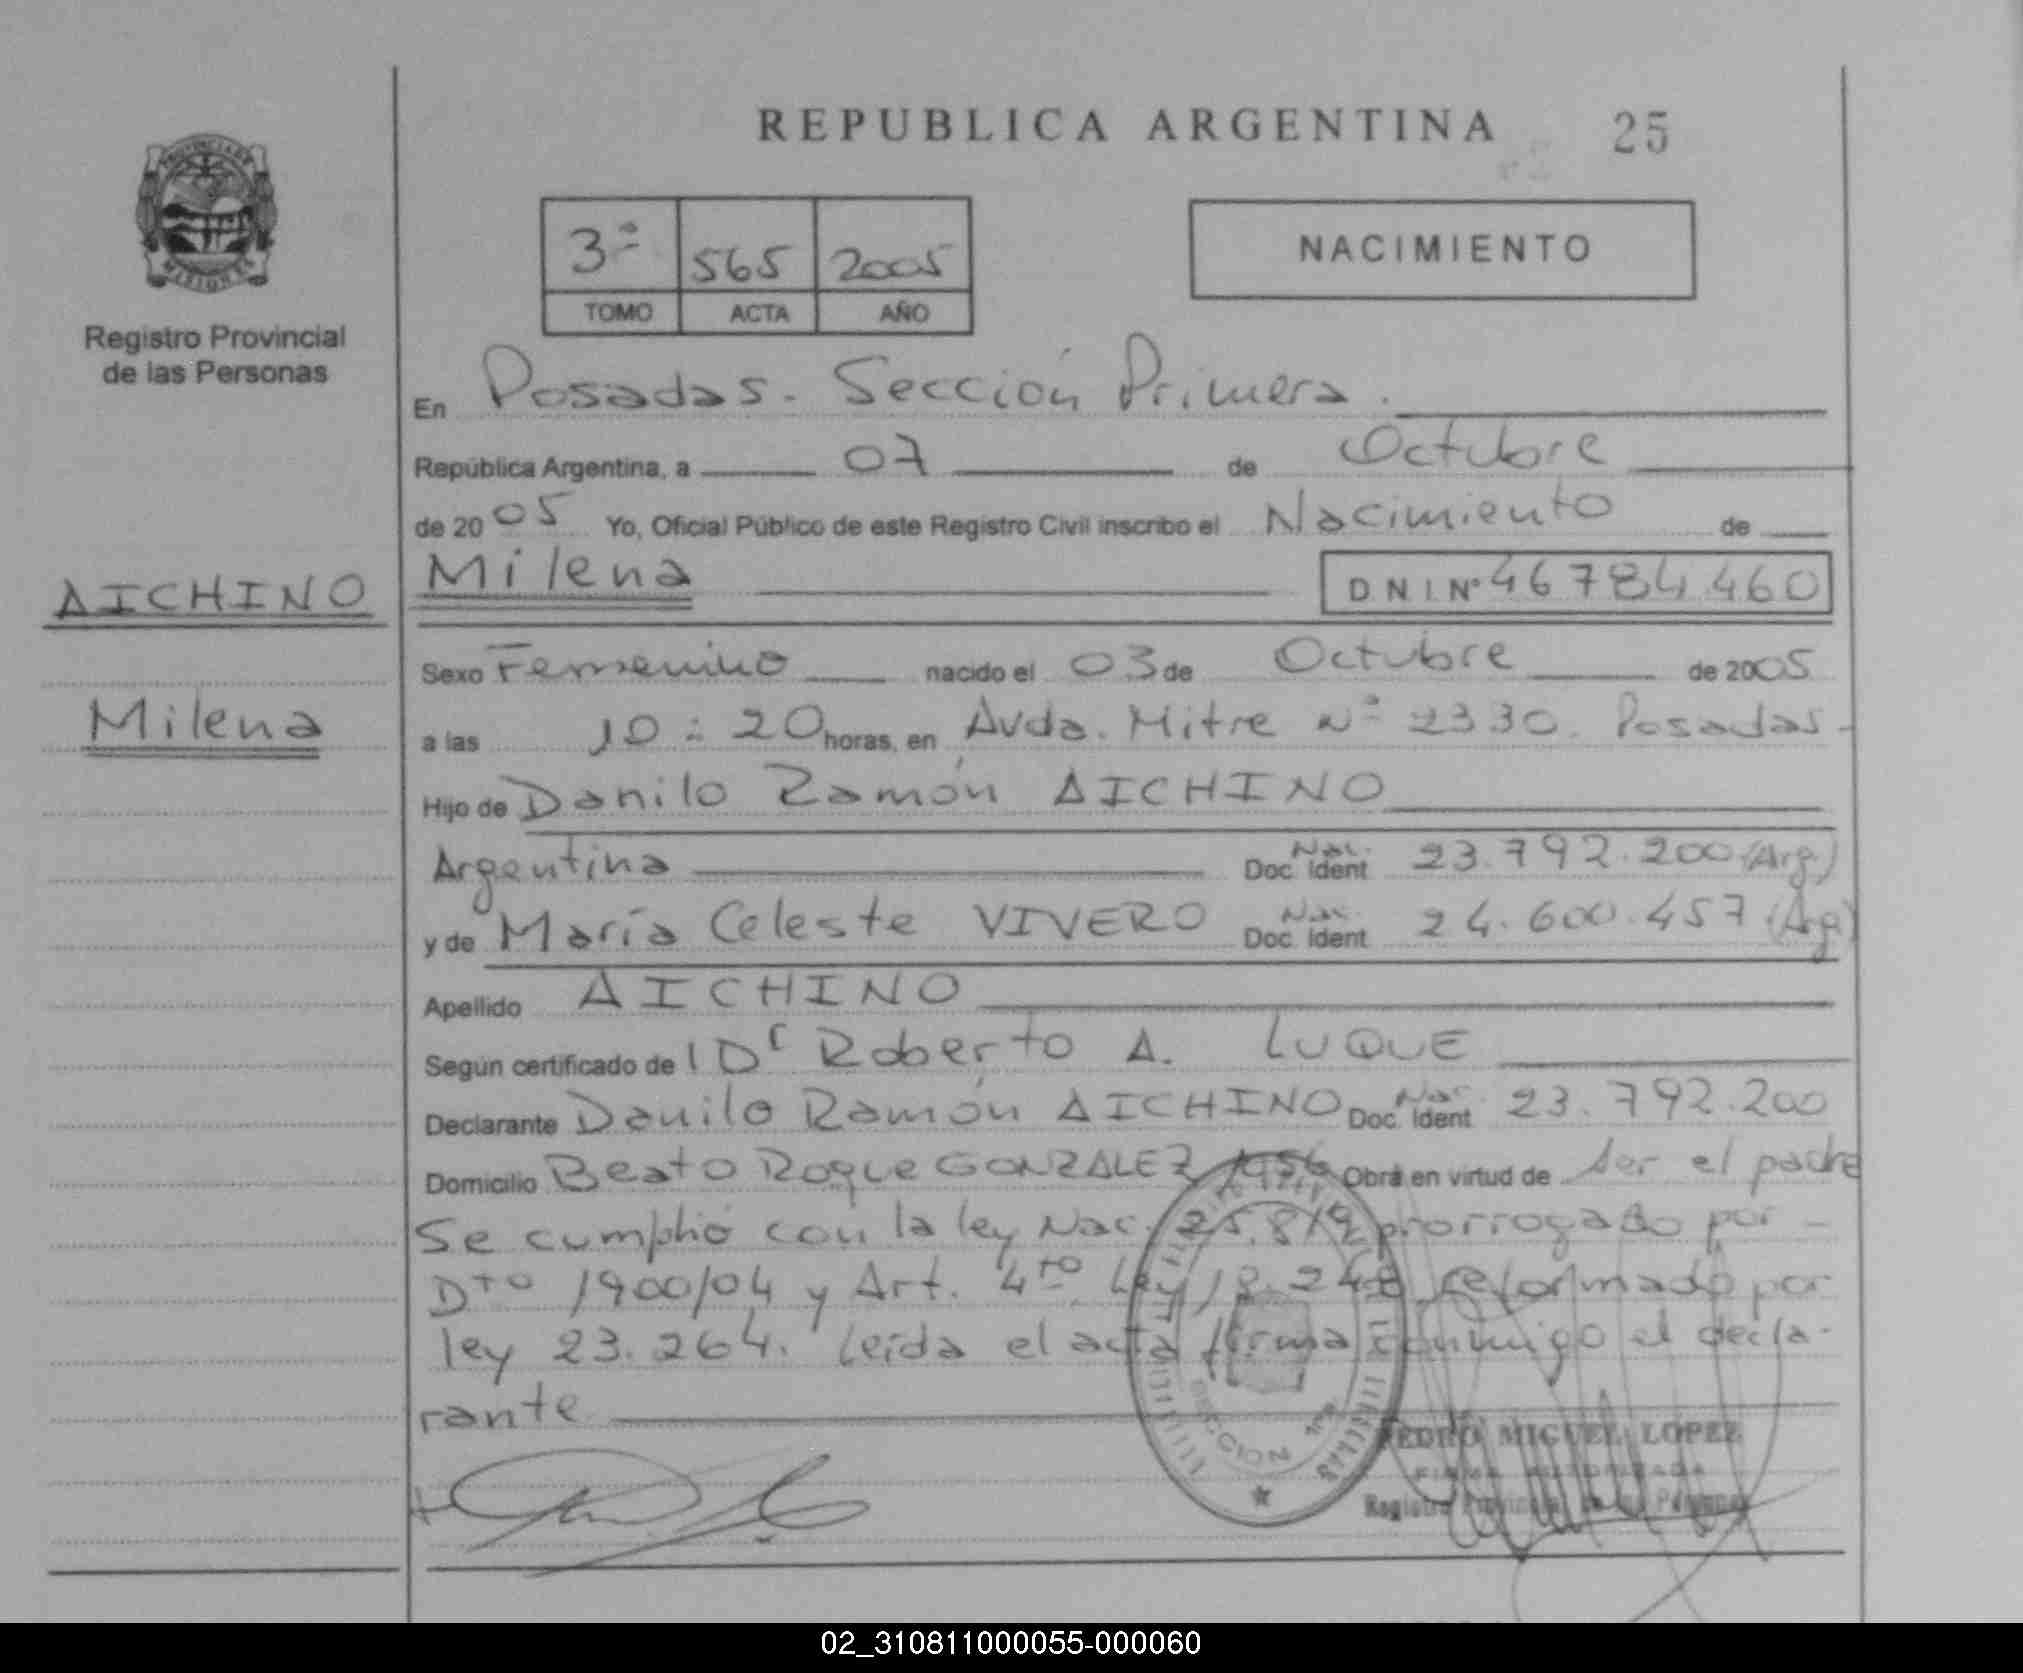 REPUBLICA ARGENTINA 25
PROVINCIA DE
MISIONES
Registro Provincial
de las Personas
3ª 565 2005
TOMO ACTA AÑO
NACIMIENTO
En Posadas. Sección Primera.
República Argentina, a 07 de Octubre
de 2005 Yo, Oficial Público de este Registro Civil inscribo el Nacimiento de
AICHINO
Milena
Milena DNI Nº 46784.460
Sexo Femenino nacido el 03 de Octubre de 2005
a las 10:20 horas, en Avda. Mitre Nº 2330. Posadas-
Hijo de Danilo Ramón AICHINO
Argentina Doc. Nac. Ident 23.792.200 (Arg.)
y de María Celeste VIVERO Doc. Nac. Ident 24.600.457 (Arg)
Apellido AICHINO
Según certificado de l Dr Roberto A. LUQUE
Declarante Danilo Ramón AICHINO Doc. Nac. Ident 23.792.200
Domicilio Beato Roque GONZALEZ 1956 Obra en virtud de ser el padre
Se cumplió con la ley Nac. 25.819 prorrogado por
Dto 1900/04 y Art. 4to Ley 18.248 reformado por
ley 23.264. Leída el acta firma conmigo el decla-
rante
SECCION 1ra
PEDRO MIGUEL LOPEZ
FIRMA AUTORIZADA
Registro Provincial de las Personas
02_310811000055-000060